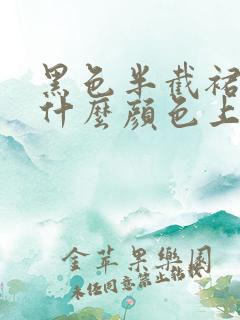 黑色半截裙
什麼顏色上
金苹果樂園
未经同意禁止转载